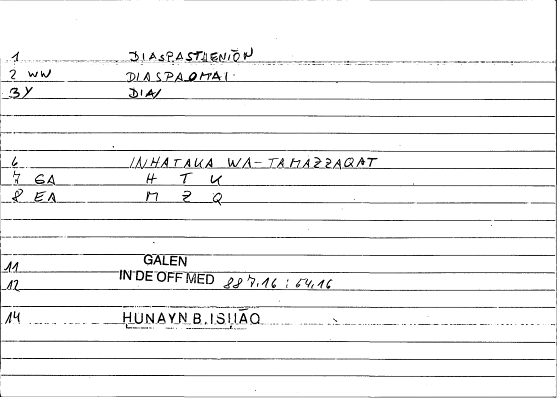 1 DIASPASTHENIŌN
2 WW DIASPAOMAI
3Y DIA/
6 INHATAKA WA-TAMAZZAQAT
7 GA H T K
8 EA M Z Q
11 GALEN
12 IN DE OFF MED 887.16 : 64.16
14 HUNAYN B. ISḤĀQ